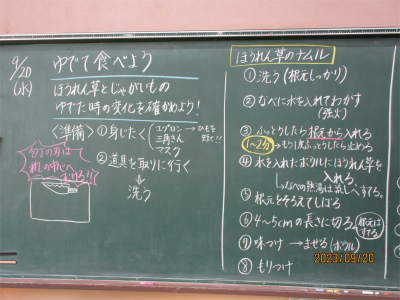 9/20
(水)
ゆでて食べよう
ほうれん草とじゃがいも
ゆでた時の変化を確かめよう!
〈準備〉①身じたく
エプロン
三角きん
マスク
ひもを
②道具を取りに行く
洗う
包丁の刃は
ほうれん草のナムル
①洗う(根元しっかり)
②なべに水を入れてわかす
(強火)
③ふっとうしたら根元から入れる
1~2分 もう1度ふっとうしたら止める
④水を入れたボウルにほうれん草を
入れる。
⑤根元をそろえてしぼる
⑥4~5cmの長さに切る
根元は
すてる
⑦味つけ→まぜる(ボウル)
⑧もりつけ
2023/09/20